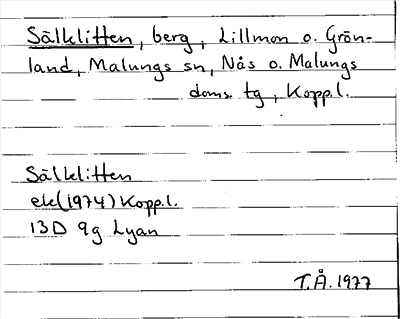 Sälklitten, berg, Lillmon o. Grön-
land, Malungs sn, Nås o. Malungs
doms. tg, Kopp.l.
Sälklitten
ek(1974) Kopp.l.
13D 9g Lyan
T.Å. 1977